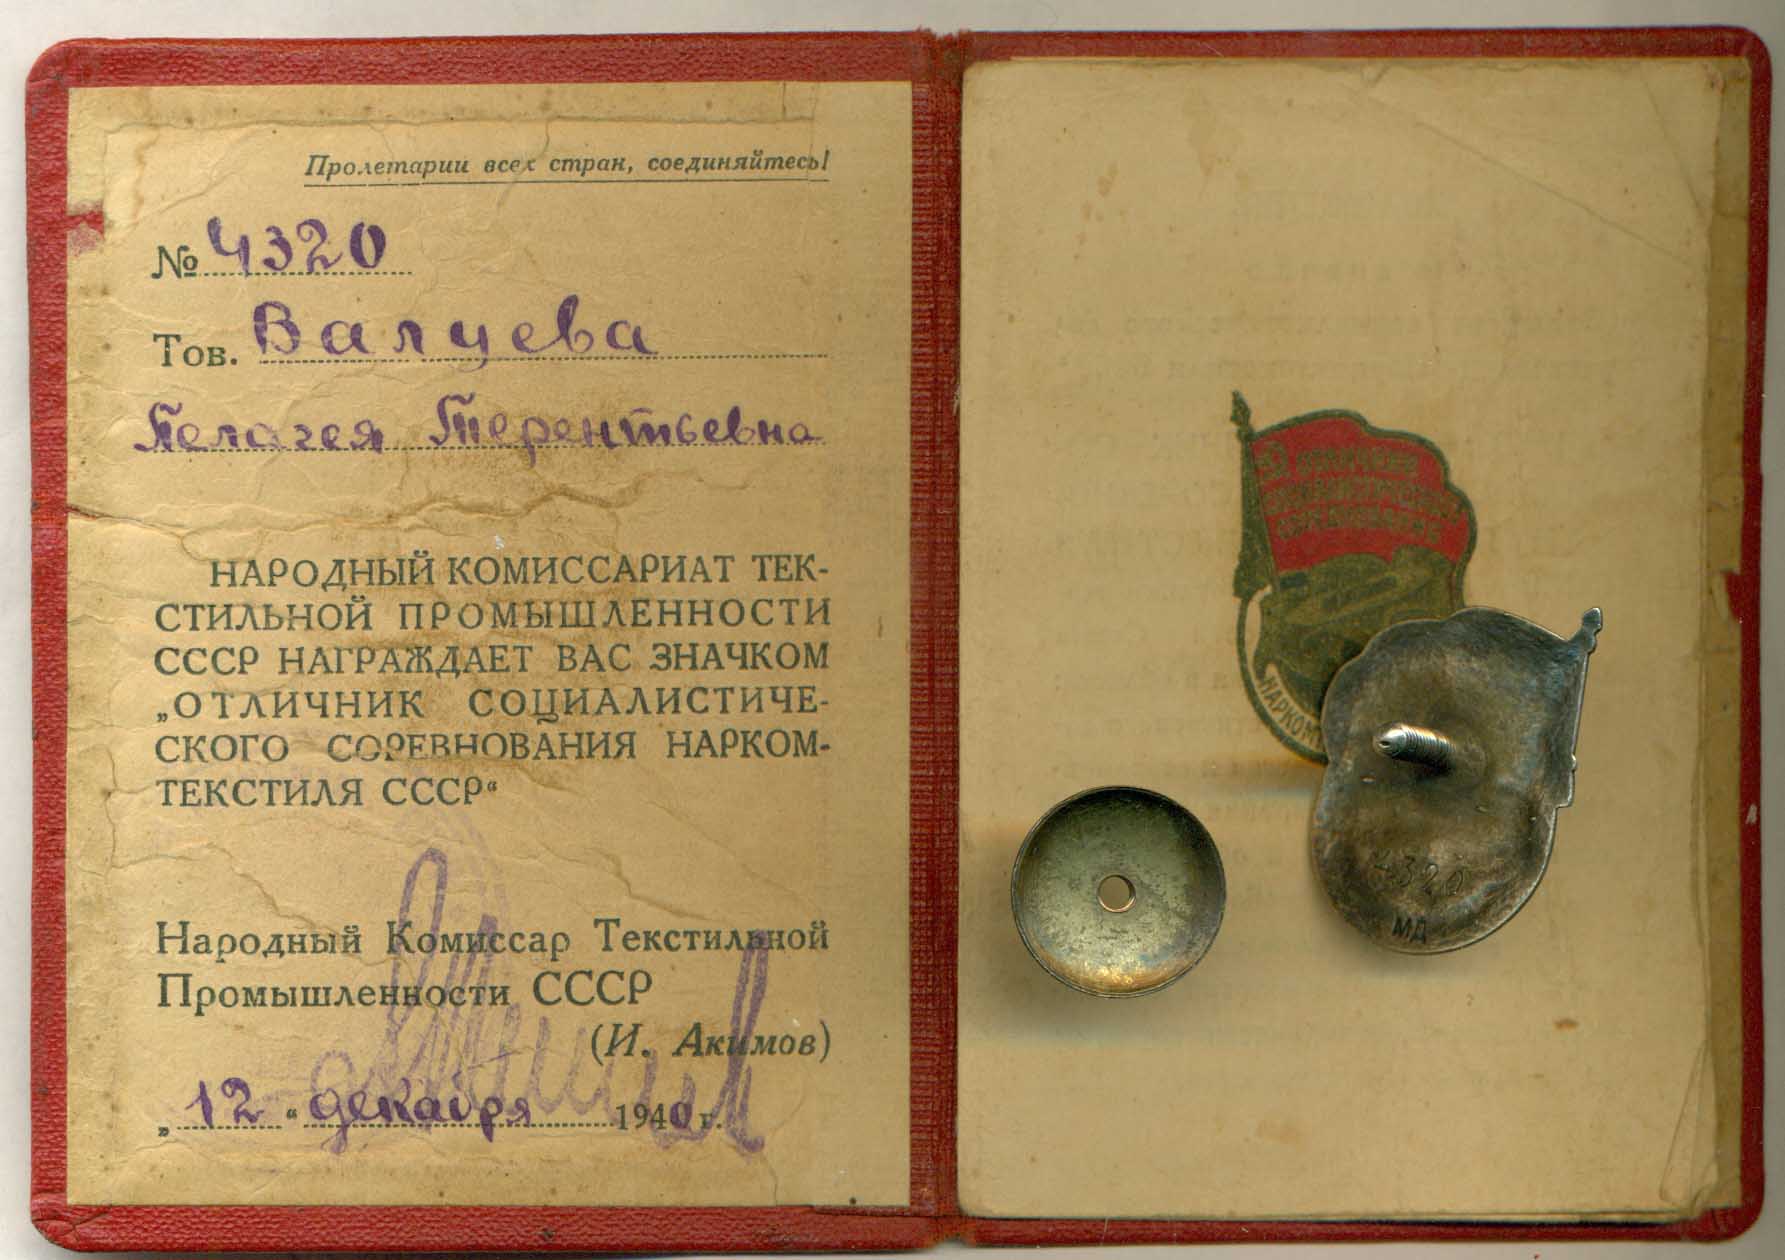 Пролетарии всех стран, соединяйтесь!
№ 4320
Тов. Валуева
Пелагея Терентьевна
НАРОДНЫЙ КОМИССАРИАТ ТЕК-
СТИЛЬНОЙ ПРОМЫШЛЕННОСТИ
СССР НАГРАЖДАЕТ ВАС ЗНАЧКОМ
„ОТЛИЧНИК СОЦИАЛИСТИЧЕ-
СКОГО СОРЕВНОВАНИЯ НАРКОМ-
ТЕКСТИЛЯ СССР“
Народный Комиссар Текстильной
Промышленности СССР
(И. Акимов)
„12“ декабря 1940 г.
ОТЛИЧНИК
СОЦИАЛИСТИЧЕСКОГО
СОРЕВНОВАНИЯ
НАРКОМ
4320
МД